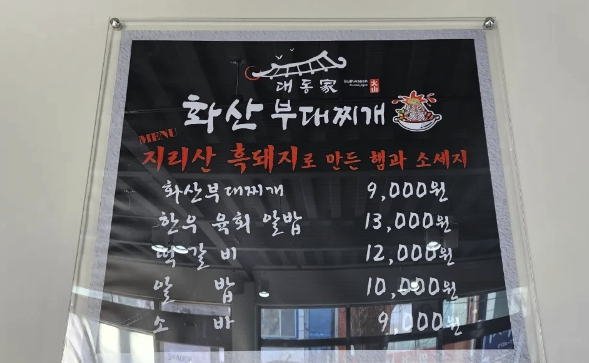 대동家 火山
화산부대찌개
MENU
지리산 흑돼지로 만든 햄과 소세지
화산부대찌개 9,000원
한우 육회 알밥 13,000원
떡갈비 12,000원
알밥 10,000원
소바 9,000원